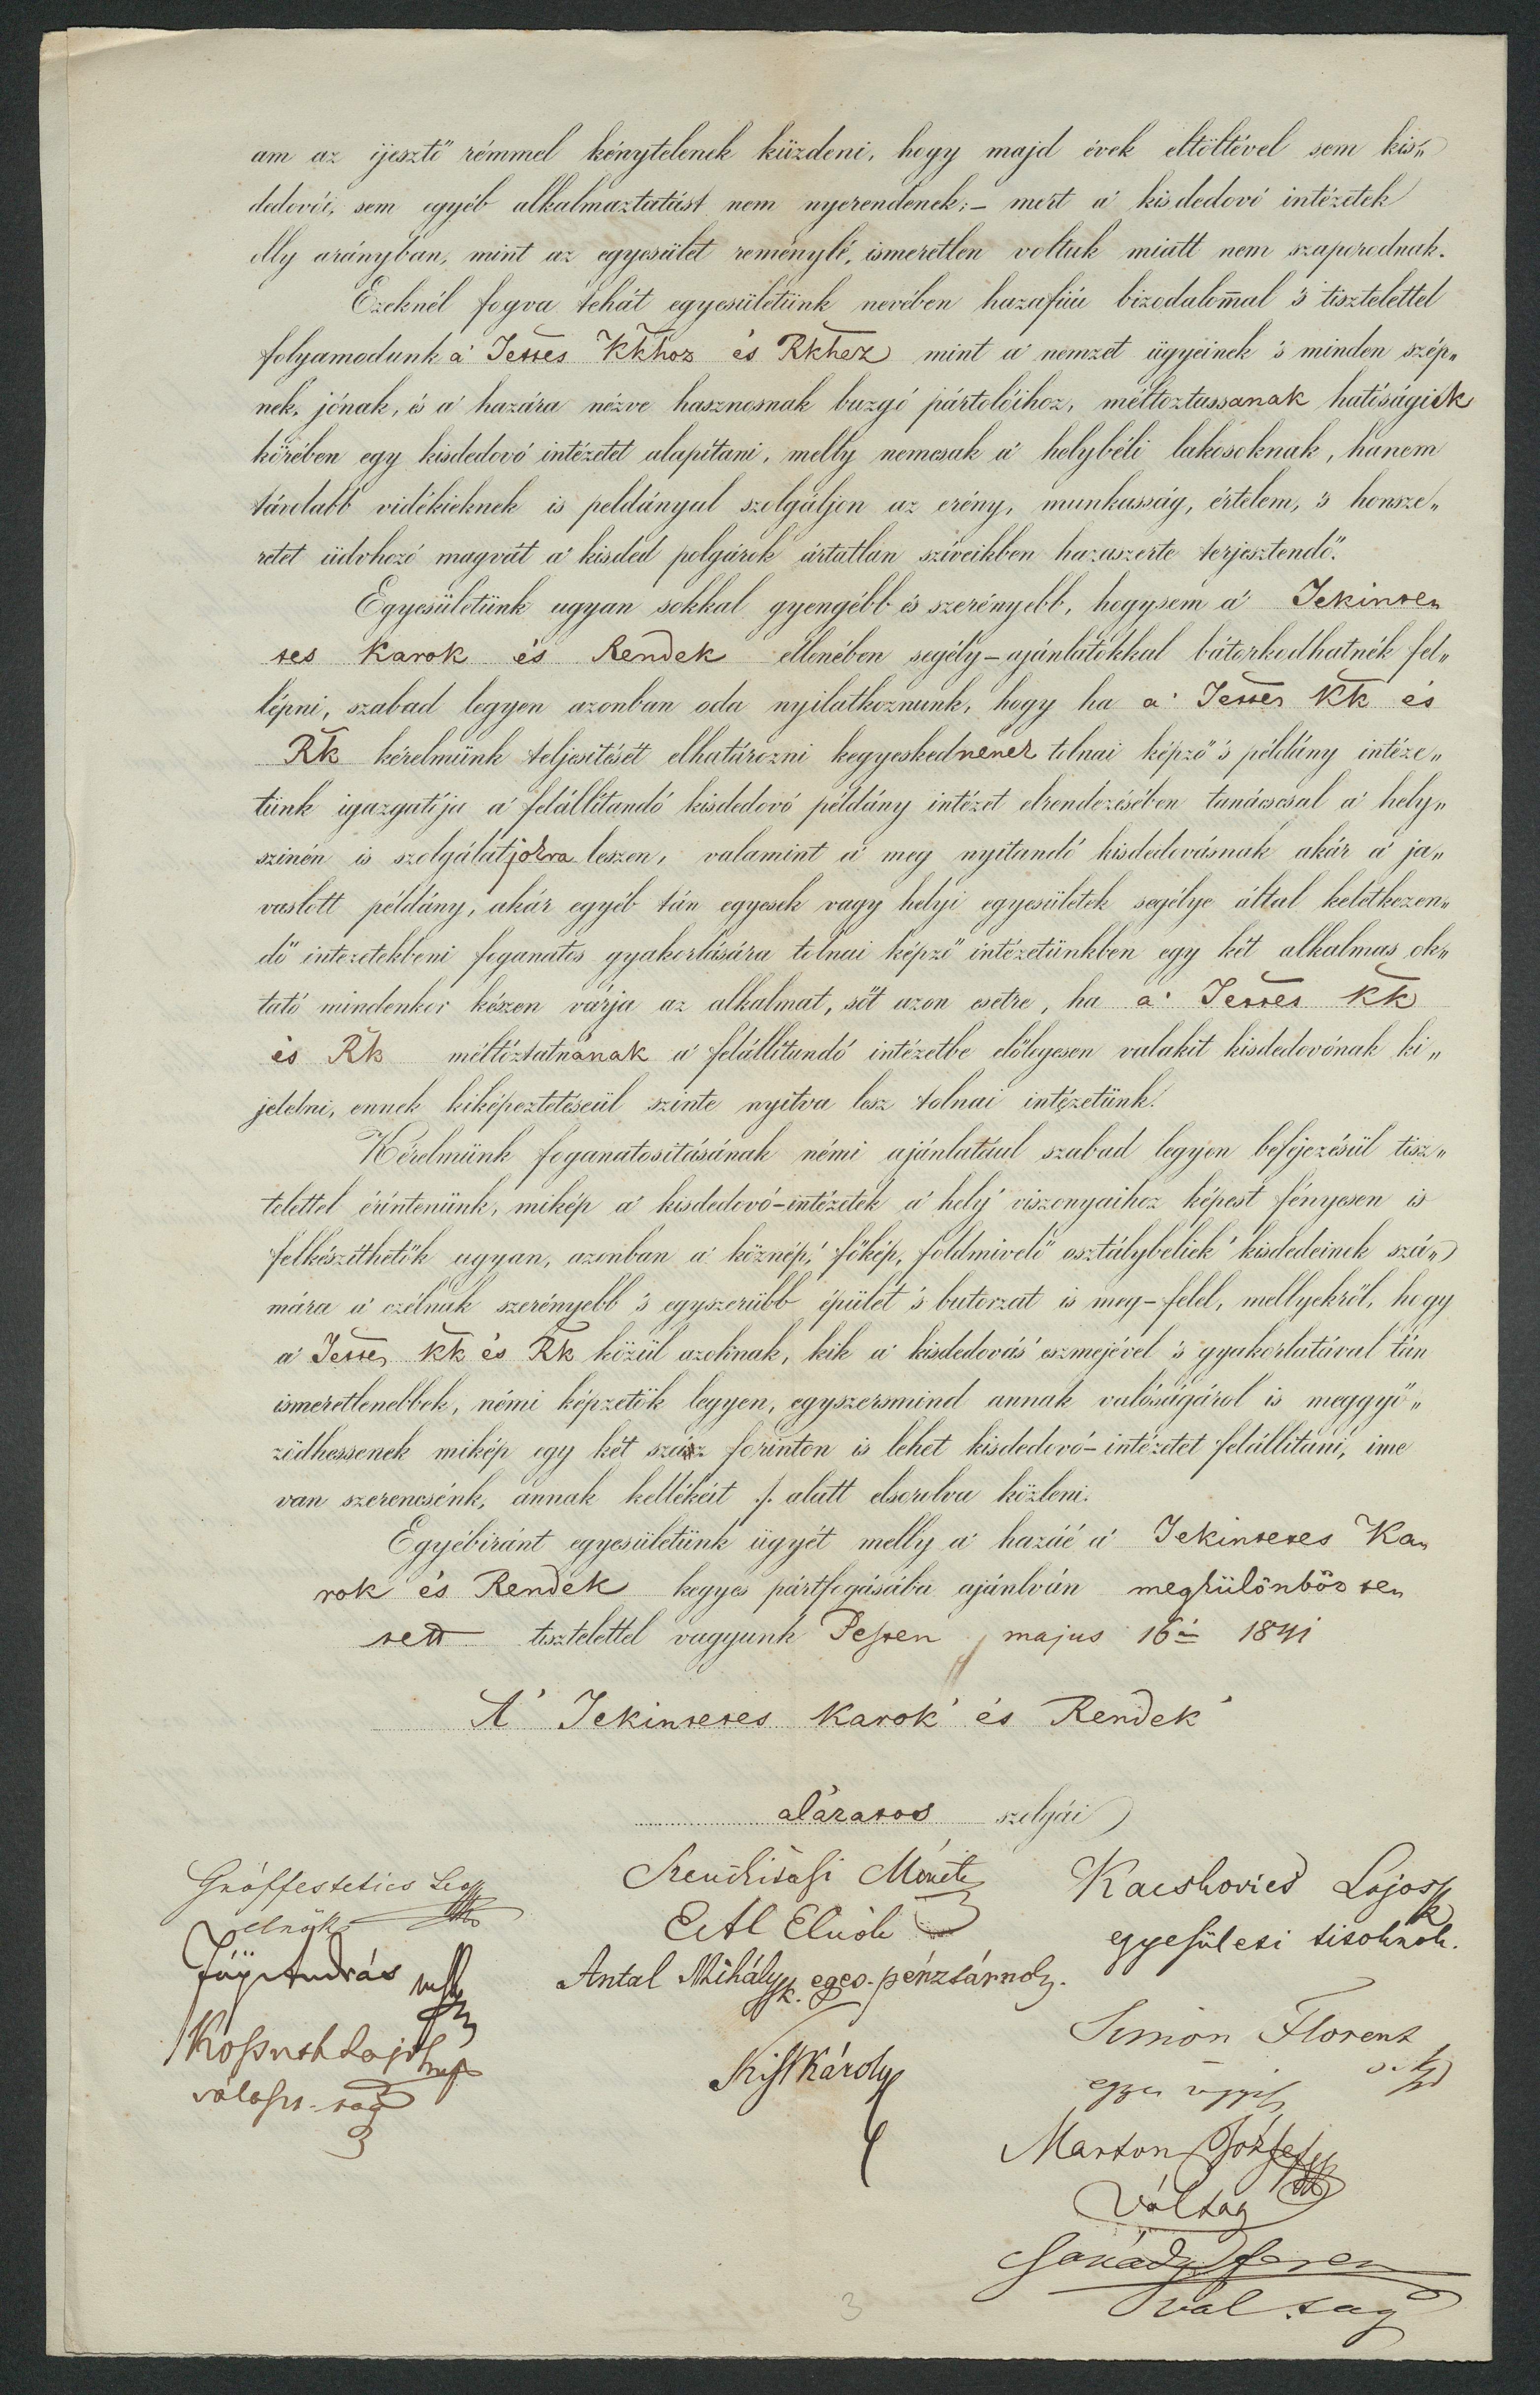 am az ijesztő rémmel kénytelenek küzdeni, hogy majd évek eltöltével sem kis„
dedovói, sem egyéb alkalmaztatást nem nyerendenek;– mert a' kisdedovó intézetek
olly arányban, mint az egyesület reménylé, ismeretlen voltuk miatt nem szaporodnak.
Ezeknél fogva tehát egyesületünk nevében hazafiúi bizodalom̄al 's tisztelettel
folyamodunk a' Tettes KKhoz és RKhez mint a' nemzet ügyeinek 's minden szép„
nek, jónak, és a' hazára nézve hasznosnak buzgó pártolóihoz, méltoztassanak hatóságick
körében egy kisdedovó intézetet alapítani, melly nemcsak a' helybéli lakosoknak, hanem
távolabb vidékieknek is peldányul szolgáljon az erény, munkasság, értelem, 's honsze„
retet üdvhozó magvát a' kisded polgárok ártatlan szíveikben hazaszerte terjesztendő.
Egyesületünk ugyan sokkal gyengébb és szerényebb, hogysem a' Tekinte„
tes Karok és Rendek ellenében segély–ajánlatokkal bátorkodhatnék fel„
lépni, szabad legyen azonban oda nyilatkoznunk, hogy ha a' Tettes KK és
RK kérelmünk teljesítését elhatározni kegyeskednének tolnai képző 's példány intéze„
tünk igazgatója a' felállítandó kisdedovó példány intézet elrendezésében tanácscsal a' hely„
szinén is szolgálatjokra leszen, valamint a' meg nyitandó kisdedovásnak akár a' ja„
vaslott példány, akár egyéb tán egyesek vagy helyi egyesületek segélye által keletkezen„
dő intezetekbeni foganatos gyakorlására tolnai képző intézetünkben egy két alkalmas ok„
tató mindenkor készen várja az alkalmat, sőt azon esetre, ha a' Tettes KK
és RK méltóztatnának a' felállítandó intézetbe előlegesen valakit kisdedovónak ki„
jelelni, ennek kiképeztetéseül szinte nyitva lesz tolnai intézetünk.
Kérelmünk foganatosításának némi ajánlatául szabad legyen befejezésül tisz„
telettel érintenünk, mikép a' kisdedovó–intézetek a' hely' viszonyaihoz képest fényesen is
felkészíthetők ugyan, azonban a' köznép,' főkép, földmivelő osztálybeliek' kisdedeinek szá„
mára a' czélnak szerényebb 's egyszerübb épület 's butorzat is meg–felel, mellyekről, hogy
a' Tettes KK és RK közül azoknak, kik a' kisdedovás' eszmejével 's gyakorlatával tán
ismeretlenebbek, némi képzetök legyen, egyszersmind annak valóságárol is meggyő„
ződhessenek mikép egy két száz forinton is lehet kisdedovó–intézetet felállítani, ime
van szerencsénk, annak kellékeit ./. alatt elsorolva közleni.
Egyébiránt egyesületünk ügyét melly a' hazáé a' Tekintetes Ka„
rok és Rendek kegyes pártfogásába ajánlván megkülönbözte„
tett tisztelettel vagyunk Pesten május 16án 1841
A' Tekintetes Karok' és Rendek'
alázatos szolgái
Gróf Festetics Leo
elnök
Fáy András
Kossuth Lajos
választ. tag
Móricz
Antal Mihály k. egyes. pénztárnok.
Kiss Károly
Kacskovics Lajos
egyesületi titoknok.
Simon Florent
egyes. ügyész
Marton József
Vál tag
Csanády Feren
vál. tag
3